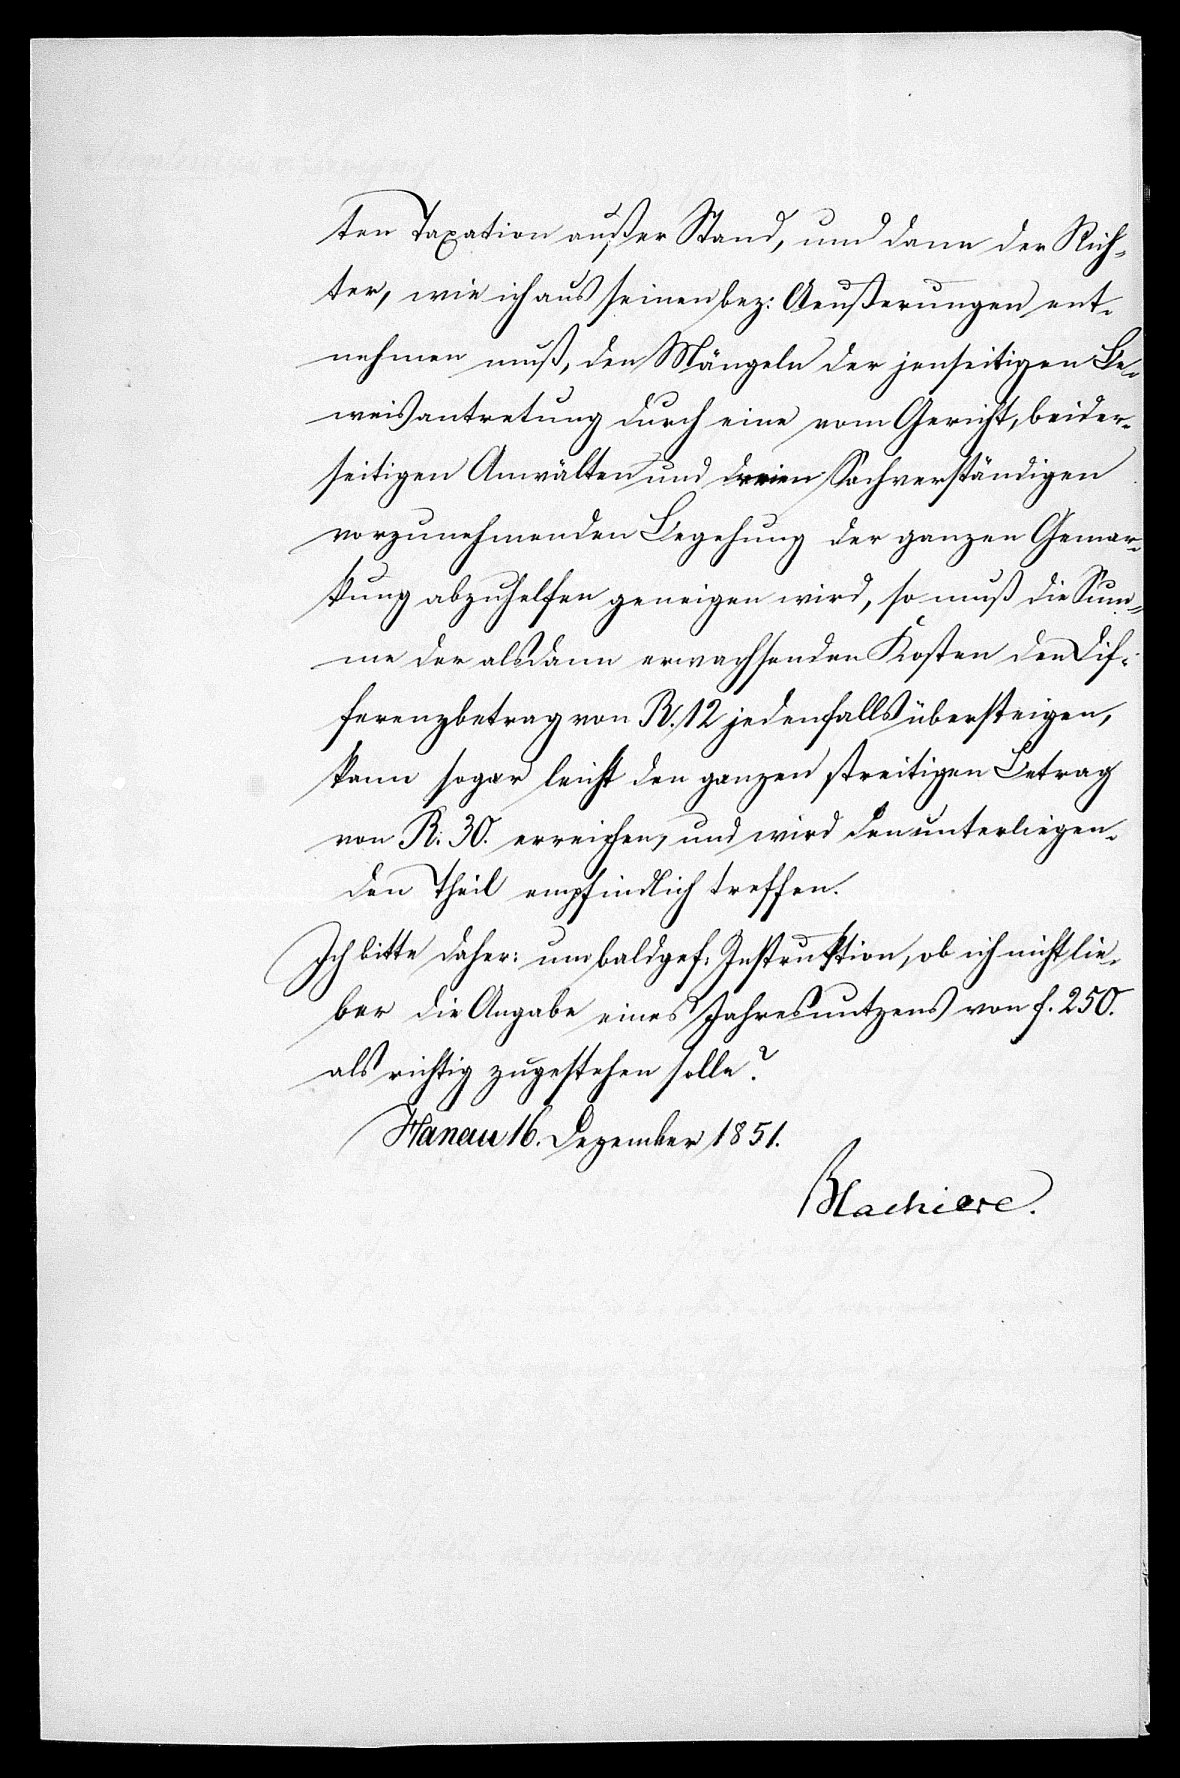 ten Taxation außer Stand, und dann der Rich-
ter, wie ich aus seinen bez: Aeußerungen ent-
nehmen muß, den Mängeln der jenseitigen Be-
weisantretung durch eine vom Gericht, beider-
seitigen Anwälten und dreien Sachverständigen
vorzunehmenden Begehung der ganzen Gemar-
kung abzuhelfen geneigen wird, so muß die Sum-
me der alsdann erwachsenden Kosten den Dif-
ferenzbetrag von R. 12 jedenfalls übersteigen,
kann sogar leicht den ganzen streitigen Betrag
von R: 30. erreichen, und wird den unterliegen-
den Theil empfindlich treffen.
Ich bitte daher: um baldgef: Instruktion, ob ich nicht lie-
ber die Angabe eines Jahresnutzens von f. 250.
als richtig zugestehen solle?
Hanau 16. Dezember 1851.
Blachiere.